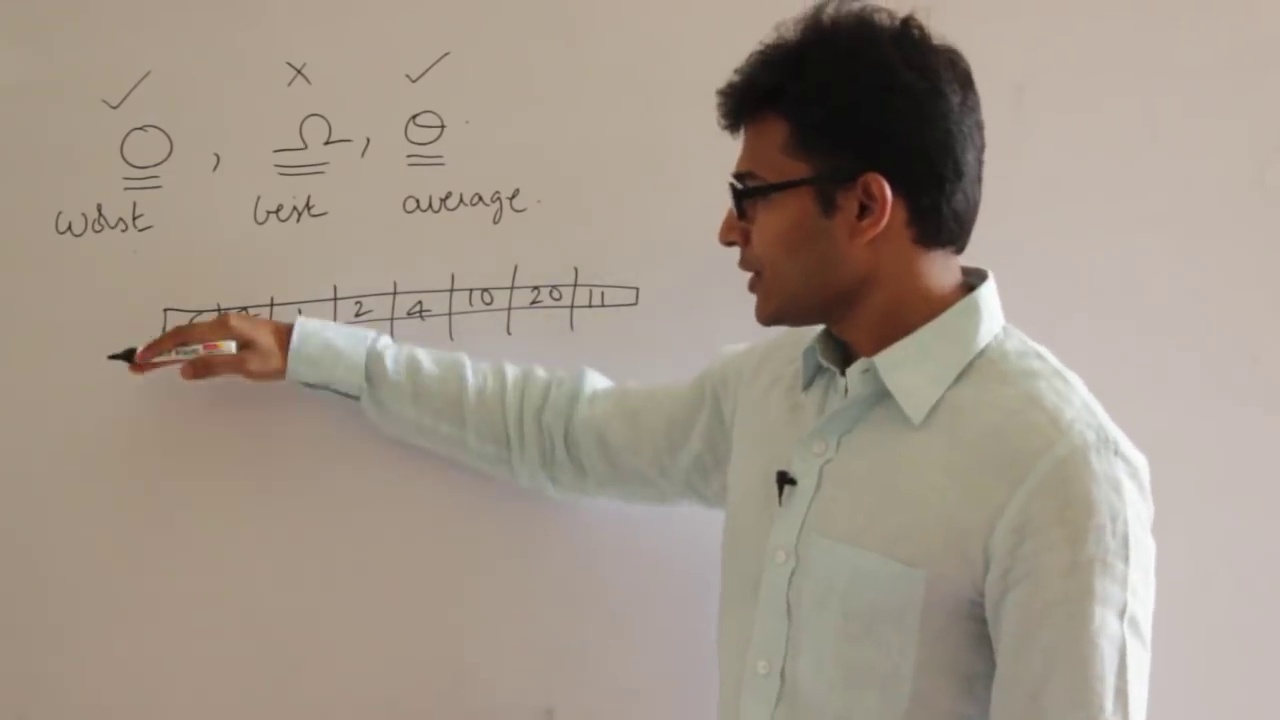 ✓ × ✓
O , Ω , Θ
worst best average.
2 4 10 20 11